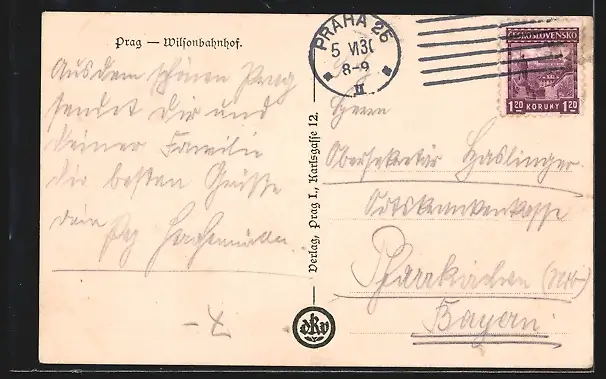 Prag — Wilsonbahnhof.
Aus dem schönen Prag
sendet Dir und
deiner Familie
die besten Grüsse
dein
Verlag, Prag I., Karlsgasse 12.
dkv
PRAHA 26
5 VI 30
8-9
II
ČESKOSLOVENSKO
1.20 KORUNY 1.20
Herrn
Obersekretär Haslinger
Ortskrankenkasse
Pfarrkirchen (Ndb.)
Bayern